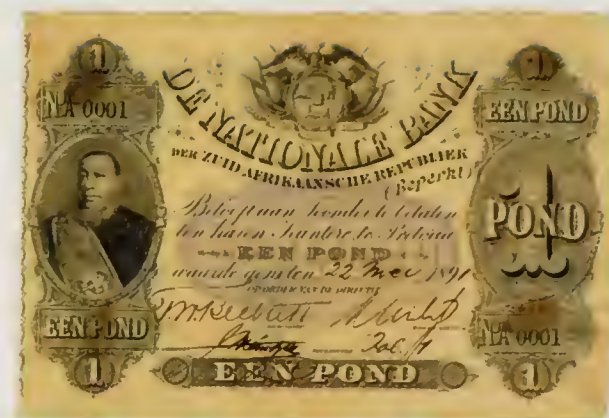 1
1
No A 0001
DE NATIONALE BANK
EEN POND
DER ZUID AFRIKAANSCHE REPUBLIEK
(Beperkt)
Belooft aan honder te betalen
ten haren Kantore te Pretoria
EEN POND
waarde genoten 22 Mei 1891
OP ORDER VAN DE DIRECTIE
1
POND
EEN POND
No A 0001
1
EEN POND
1